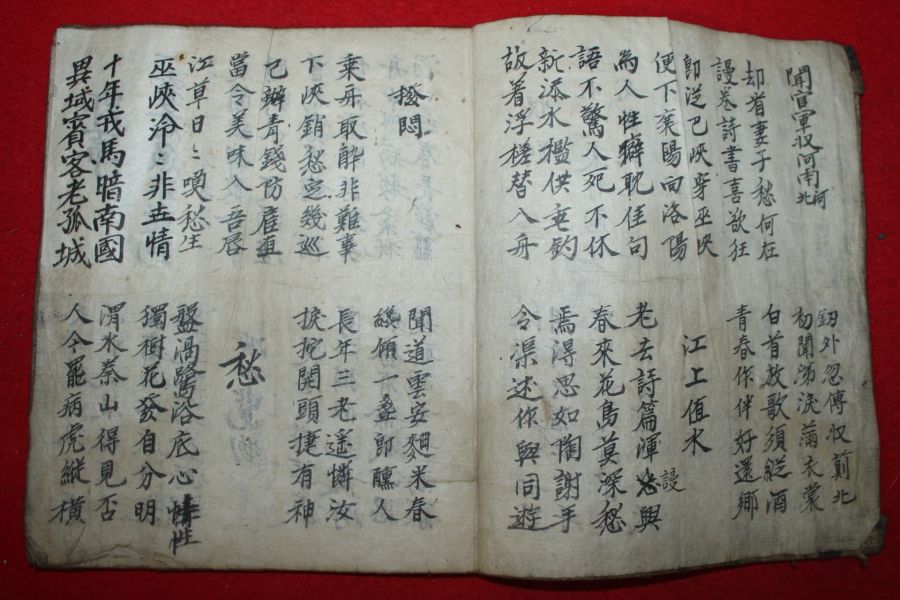 聞官軍収河南河北
釰外忽傳収薊北
初聞涕淚滿衣裳
却看妻子愁何在
謾卷詩書喜欲狂
白首放歌須縱酒
青春作伴好還鄕
卽從巴峽穿巫峽
便下襄陽向洛陽
江上值水
爲人性癖耽佳句
語不驚人死不休
老去詩篇渾謾與
春來花鳥莫深愁
新添水檻供垂釣
故着浮槎替入舟
焉得思如陶謝手
令渠述作與同遊
撥悶
聞道雲安麯米春
纔傾一盞卽醺人
乘舟取醉非難事
下峽銷愁定幾巡
長年三老遙憐汝
捩柁開頭捷有神
已辦青錢防雇直
當令美味入吾唇
愁
江草日〻喚愁生
巫峽泠〻非世情
盤渦鷺浴底心性
獨樹花發自分明
十年戎馬暗南國
異域賓客老孤城
渭水秦山得見否
人今罷病虎縱橫